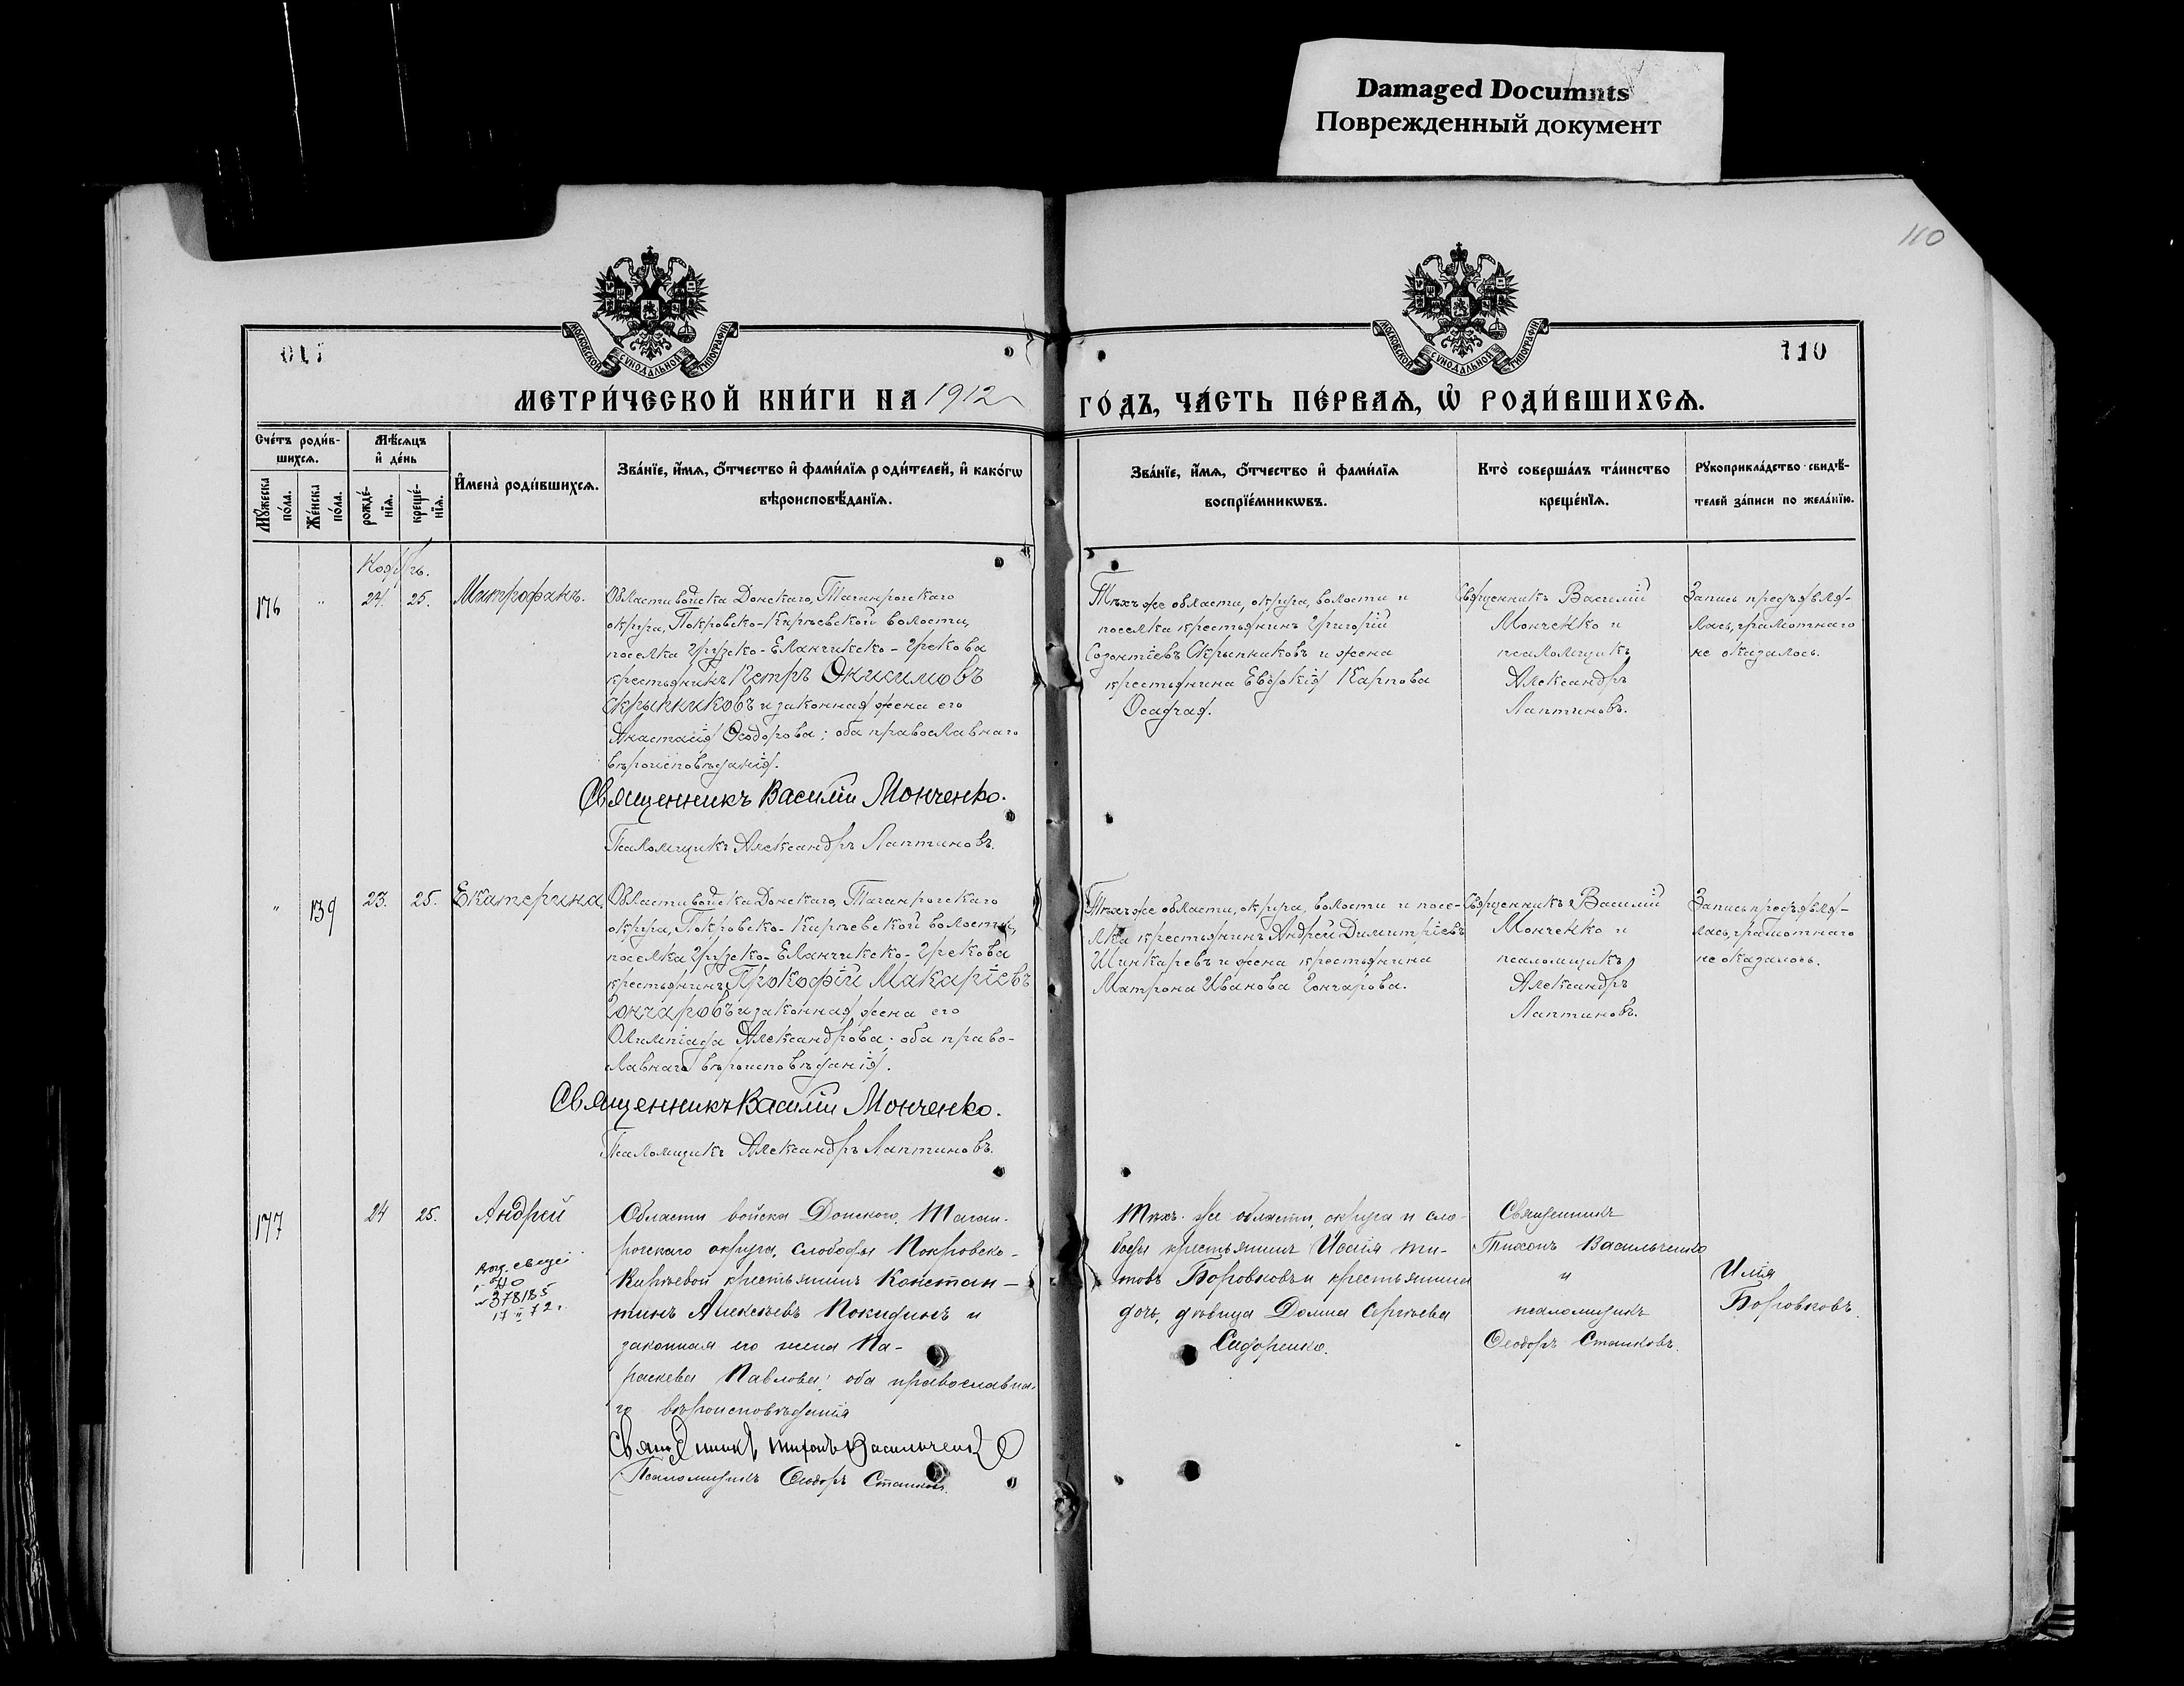 Damaged Documnts
Поврежденный документ
110
МОСКОВСКОЙ СѴНОДАЛЬНОЙ ТИПОГРАФІИ
МОСКОВСКОЙ СѴНОДАЛЬНОЙ ТИПОГРАФІИ
110
МЕТРИ́ЧЕСКОЙ КНИ́ГИ НА 1912
ГО́ДЪ, ЧА́СТЬ ПЕ́РВАѦ, Ѡ҆ РОДИ́ВШИХСѦ.
Сче́тъ роди́в-
шихсѧ.
Мꙋ́жеска по́ла.
Же́нска по́ла.
Мѣ́сѧцъ
и҆ де́нь
рожде́-нїѧ.
креще́-нїѧ.
И҆мена̀ роди́вшихсѧ.
Зва́нїе, и҆́мѧ, ѻ҆́тчество и҆ фами́лїѧ роди́телей, и҆ како́гѡ
вѣроисповѣ́данїѧ.
Зва́нїе, и҆́мѧ, ѻ҆́тчество и҆ фами́лїѧ
воспрїе́мникѡвъ.
Кто̀ соверша́лъ та́инство
креще́нїѧ.
Рꙋкоприкла́дство свидѣ́-
телей за́писи по жела́нїю.
Ноябрь.
176 " 24. 25. Митрофанъ.
Области войска Донскаго, Таганрогскаго
округа, Покровско-Кирѣевской волости,
поселка Грузско-Еланчикско-Грекова
крестьянинъ Петръ Онисимовъ
Скрынниковъ и законная жена его
Анастасія Ѳеодорова; оба православнаго
вѣроисповѣданія.
Священникъ Василій Монченко.
Псаломщикъ Александръ Лаптиновъ.
Тѣхъ же области, округа, волости и
поселка крестьянинъ Григорій
Созонтіевъ Скрынниковъ и жена
крестьянина Евдокія Карпова
Осадчая.
Священникъ Василій
Монченко и
псаломщикъ
Александръ
Лаптиновъ.
Запись предъявля-
лась, грамотнаго
не оказалось.
" 139 23. 25. Екатерина.
Области войска Донскаго, Таганрогскаго
округа, Покровско-Кирѣевской волости,
поселка Грузско-Еланчикско-Грекова
крестьянинъ Прокофій Макаріевъ
Гончаровъ и законная жена его
Олимпіада Александрова; оба право-
славнаго вѣроисповѣданія.
Священникъ Василій Монченко.
Псаломщикъ Александръ Лаптиновъ.
Тѣхъ же области, округа, волости и посе-
лка крестьянинъ Андрей Димитріевъ
Шинкаревъ и жена крестьянина
Матрона Иванова Гончарова.
Священникъ Василій
Монченко и
псаломщикъ
Александръ
Лаптиновъ.
Запись предъявля-
лась, грамотнаго
не оказалось.
177 24 25. Андрей
378185
Области войска Донского, Таган-
рогскаго округа, слободы Покровско-
Кирѣевой крестьянинъ Констан-
тинъ Алексѣевъ Покидинъ и
законная его жена Па-
раскева Павлова; оба православна-
го вѣроисповѣданія
Священникъ Тихонъ Васильченко
Псаломщикъ Ѳеодоръ Сташковъ.
Тѣхъ же области, округа и сло-
боды крестьянинъ Исаія Ти-
товъ Боровковъ и крестьянина
дочь, дѣвица Домна Сергѣева
Сидоренко.
Священникъ
Тихонъ Васильченко
и
псаломщикъ
Ѳеодоръ Сташковъ.
Илія
Боровковъ.